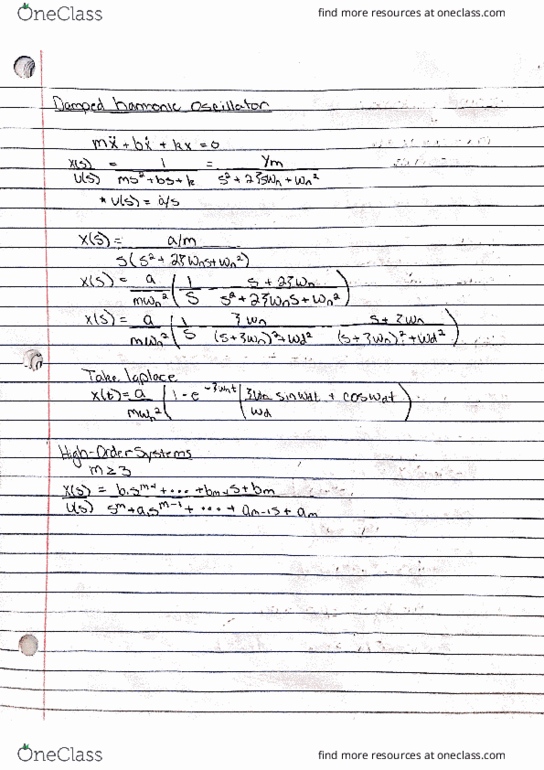 OneClass find more resources at oneclass.com
Damped harmonic oscillator
mẍ + bẋ + kx = 0
X(s) = 1 = 1/m
U(s) ms² + bs + k s² + 2ζsωn + ωn²
* U(s) = a/s
X(s) = a/m
s(s² + 2ζωns + ωn²)
X(s) = a ( 1 - s + 2ζωn )
mωn² s s² + 2ζωns + ωn²
X(s) = a ( 1 - ζωn - s + ζωn )
mωn² s (s + ζωn)² + ωd² (s + ζωn)² + ωd²
Take laplace
x(t) = a ( 1 - e^-ζωnt ( ζωn sinωdt + cosωdt )
mωn² ωd
High-Order Systems
m ≥ 3
X(s) = b₁s^m-1 + ... + bm-1s + bm
U(s) s^m + a₁s^m-1 + ... + am-1s + am
OneClass find more resources at oneclass.com